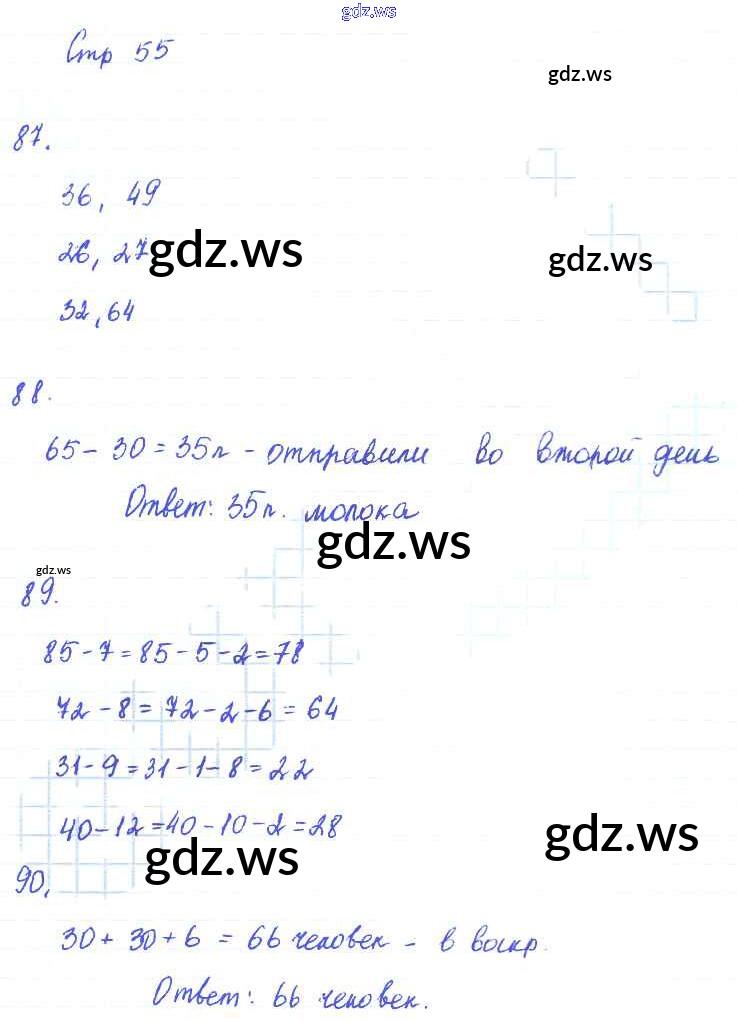 gdz.ws
Стр 55
gdz.ws
87.
36, 49
26, 27
gdz.ws
gdz.ws
32, 64
88.
65 - 30 = 35л - отправили во второй день
Ответ: 35л. молока
gdz.ws
gdz.ws
89.
85 - 7 = 85 - 5 - 2 = 78
72 - 8 = 72 - 2 - 6 = 64
31 - 9 = 31 - 1 - 8 = 22
40 - 12 = 40 - 10 - 2 = 28
gdz.ws
gdz.ws
90.
30 + 30 + 6 = 66 человек - в воскр.
Ответ: 66 человек.